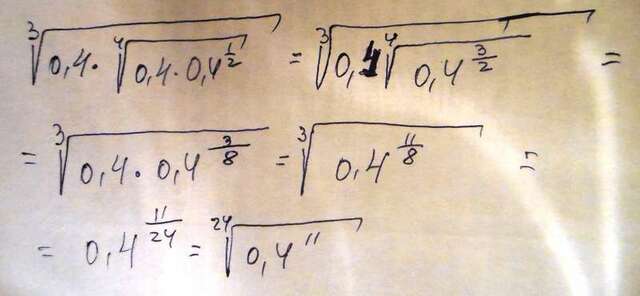 ∛(0,4·∜(0,4·0,4^(1/2))) = ∛(0,4∜(0,4^(3/2))) =
= ∛(0,4·0,4^(3/8)) = ∛(0,4^(11/8)) =
= 0,4^(11/24) = ²⁴√(0,4¹¹)